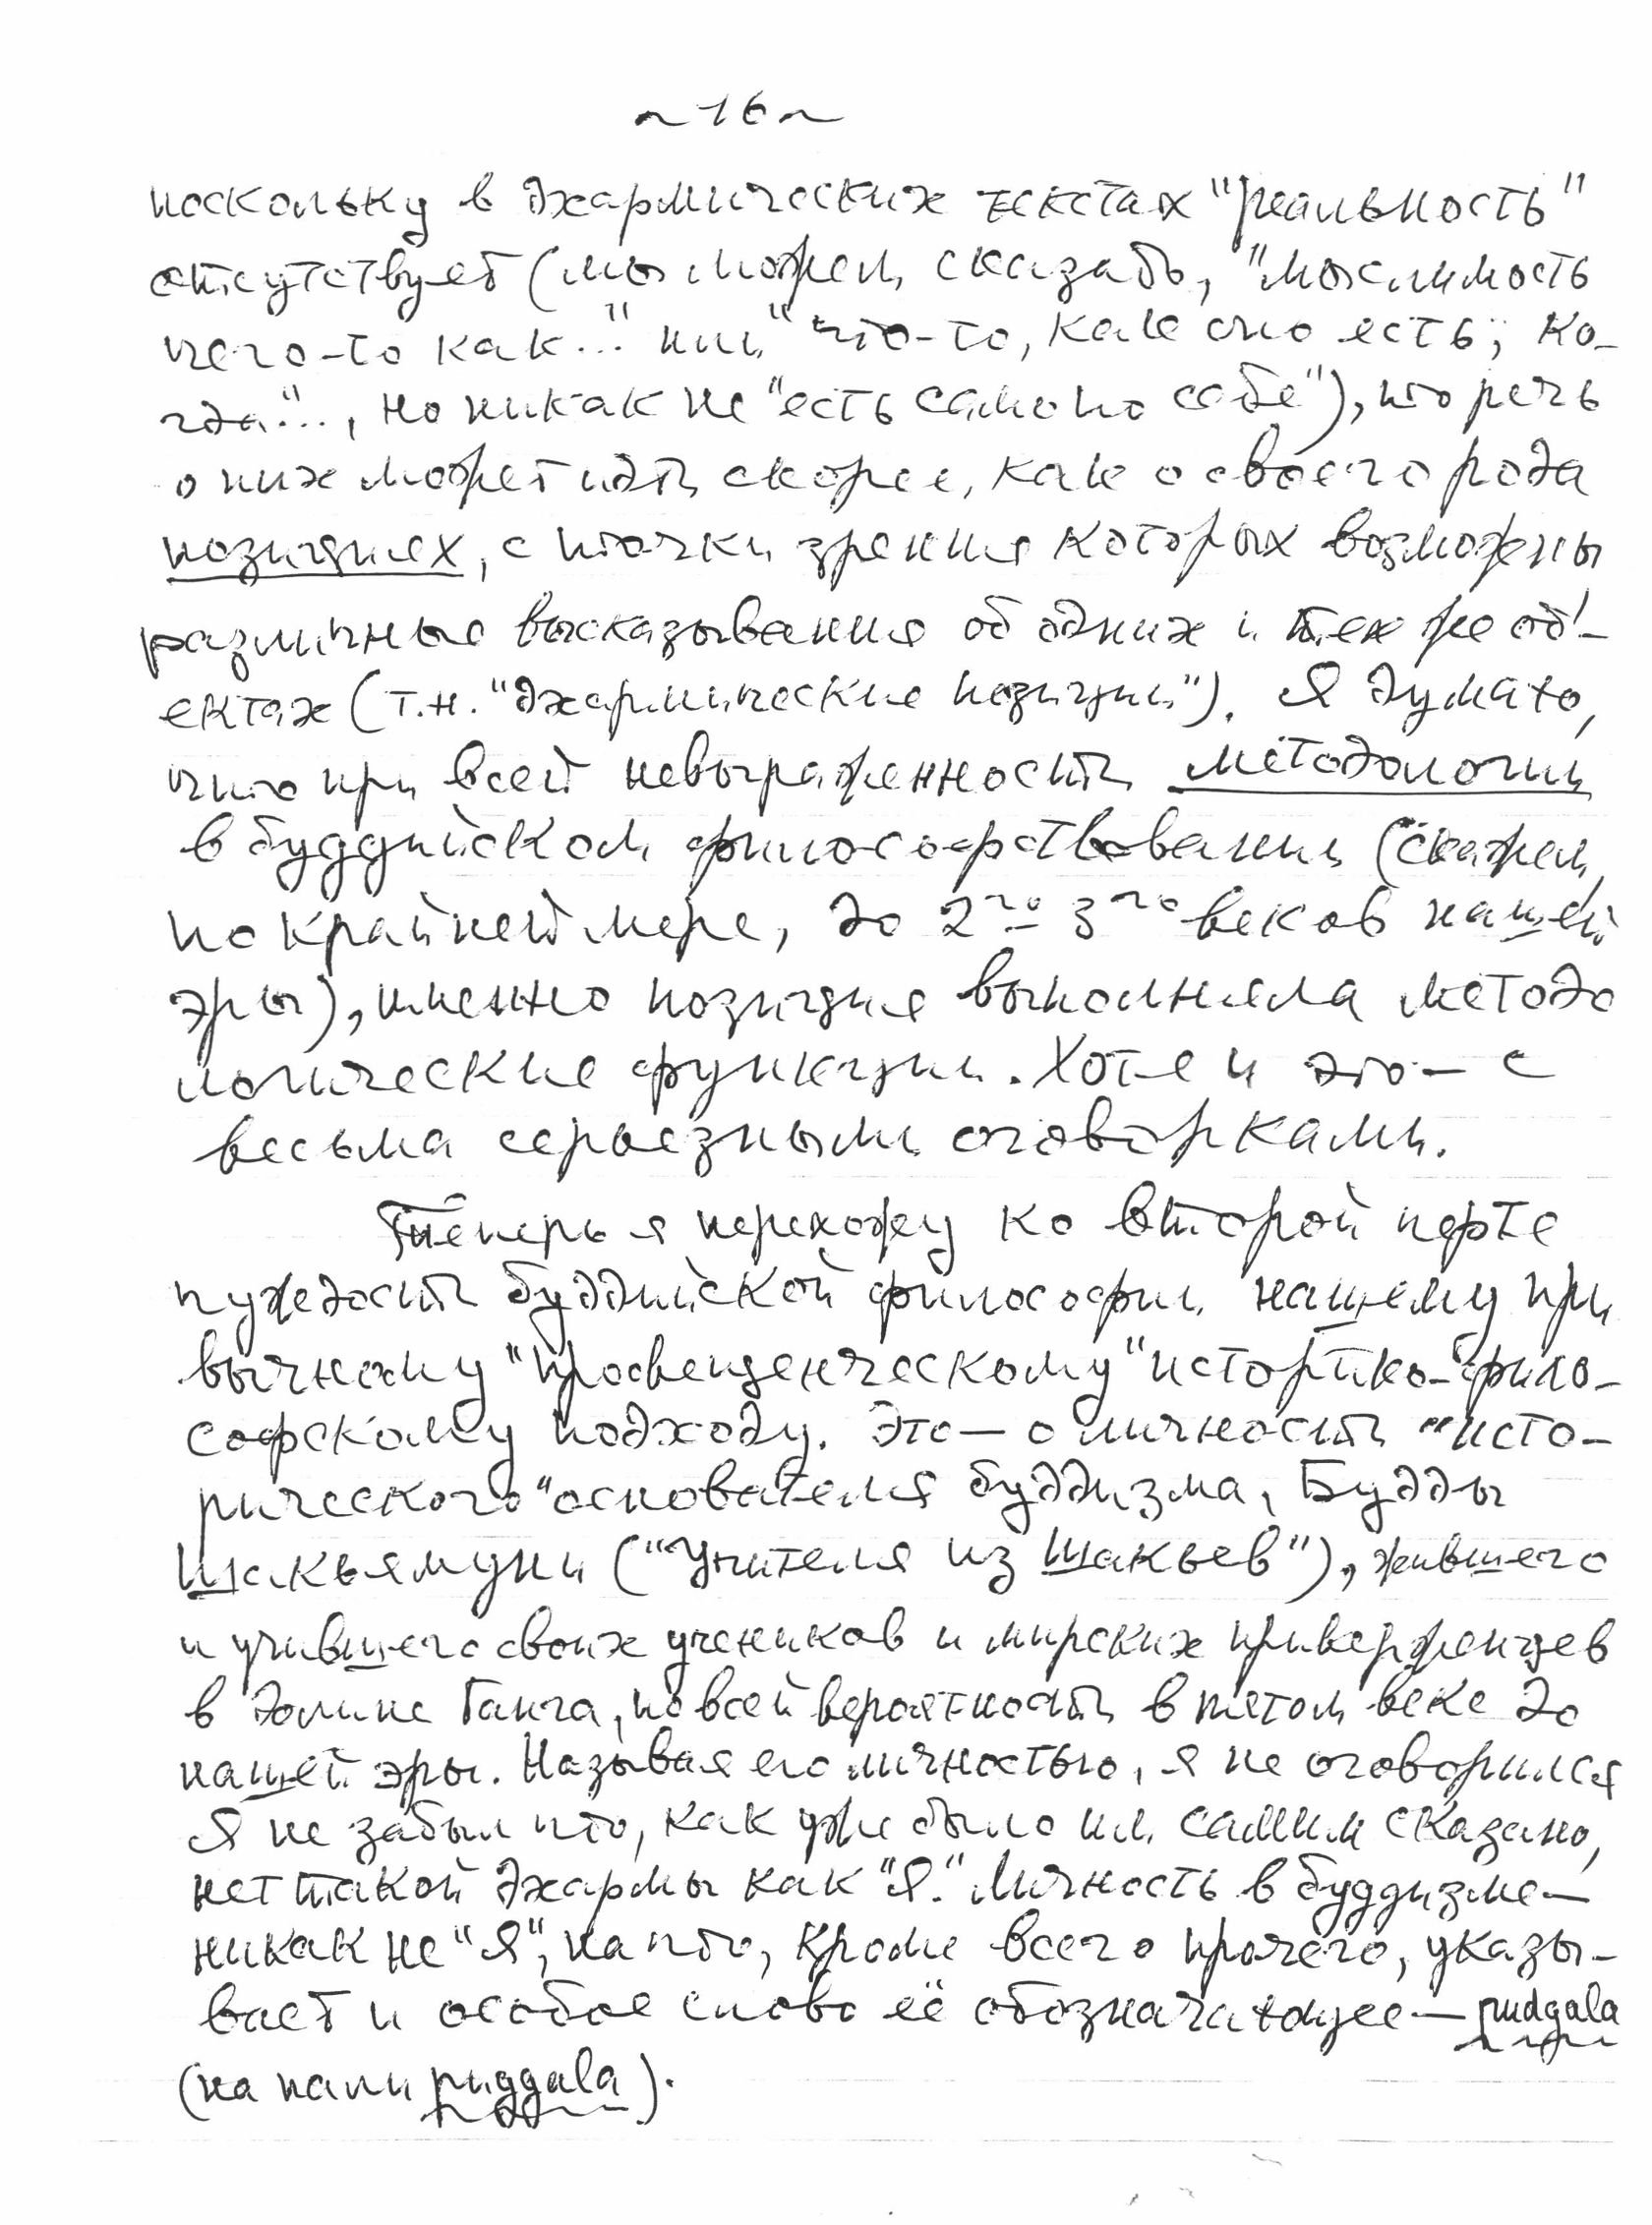 ~ 16 ~
поскольку в дхармических текстах "реальность"
отсутствует (мы можем сказать, "мыслимость
чего-то как..." или "что-то, как оно есть; ко-
гда"..., но никак не "есть само по себе"), что речь
о них может идти скорее, как о своего рода
позициях, с точки зрения которых возможны
различные высказывания об одних и тех же объ-
ектах (т.н. "дхармические позиции"). Я думаю,
что при всей невыраженности методологии
в буддийском философствовании (скажем,
по крайней мере, до 2го - 3го веков нашей
эры), именно позиция выполняла методо
логические функции. Хотя и это — с
весьма серьезными оговорками.
Теперь я перехожу ко второй черте
чуждости буддийской философии нашему при
вычному "просвещенческому" историко-фило-
софскому подходу. Это — о личности "исто-
рического" основателя буддизма, Будды
Шакьямуни ("Учителя из Шакьев"), жившего
и учившего своих учеников и мирских приверженцев
в долине Ганга, по всей вероятности в пятом веке до
нашей эры. Называя его личностью, я не оговорился
Я не забыл что, как уже было им самим сказано,
нет такой дхармы как "Я". Личность в буддизме —
никак не "Я", на что, кроме всего прочего, указы-
вает и особое слово её обозначающее — pudgala
(на пали puggala).